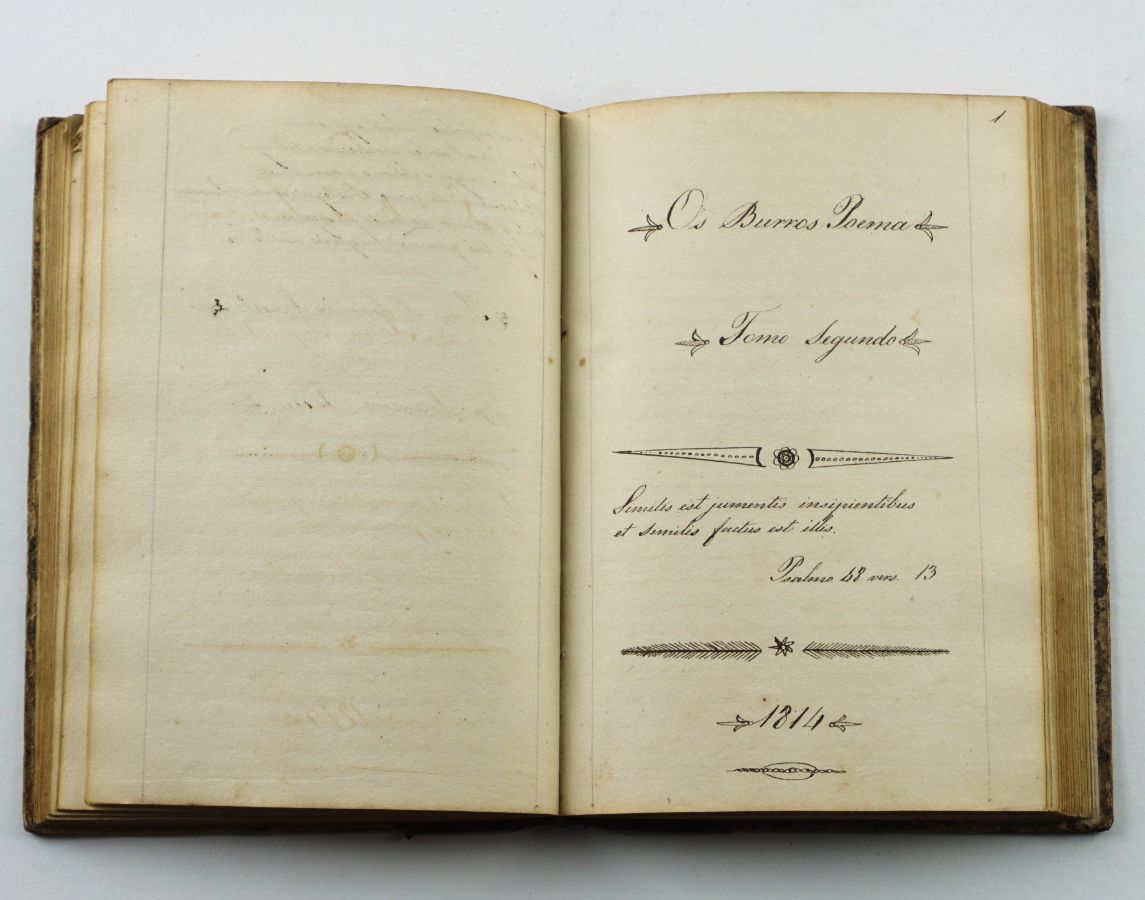 1
Os Burros Poema
Tomo Segundo
Similis est jumentis insipientibus
et similis factus est illis.
Psalmo 48 vers. 13
1814